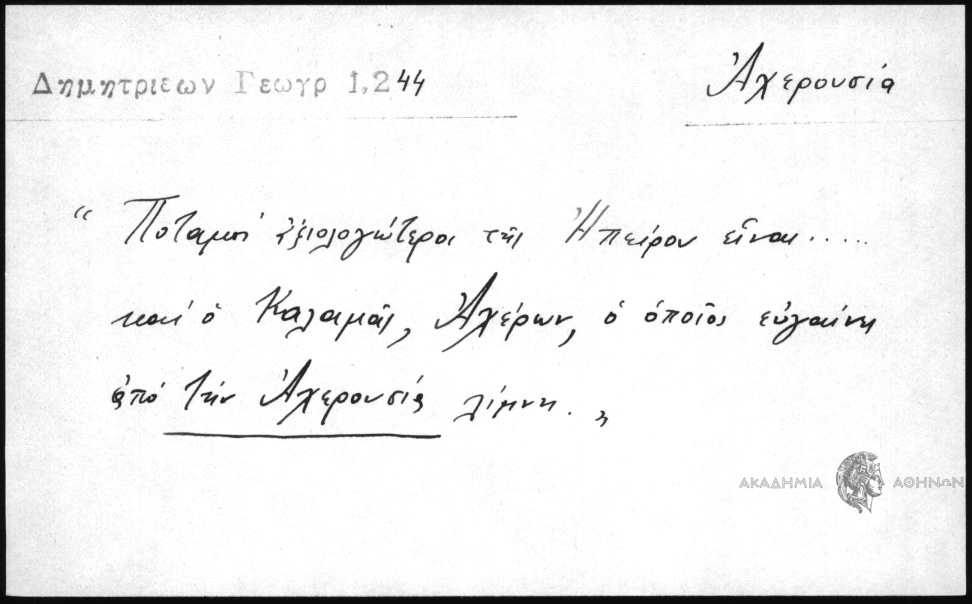 Δημητριεων Γεωγρ 1,244
Ἀχερουσία
“ Ποταμοί ἀξιολογώτεροι τῆς Ἠπείρου εἶναι.....
καί ὁ Καλαμᾶς, Ἀχέρων, ὁ ὁποῖος εὐγαίνη
ἀπό τήν Ἀχερουσία λίμνη. „
ΑΚΑΔΗΜΙΑ ΑΘΗΝΩΝ